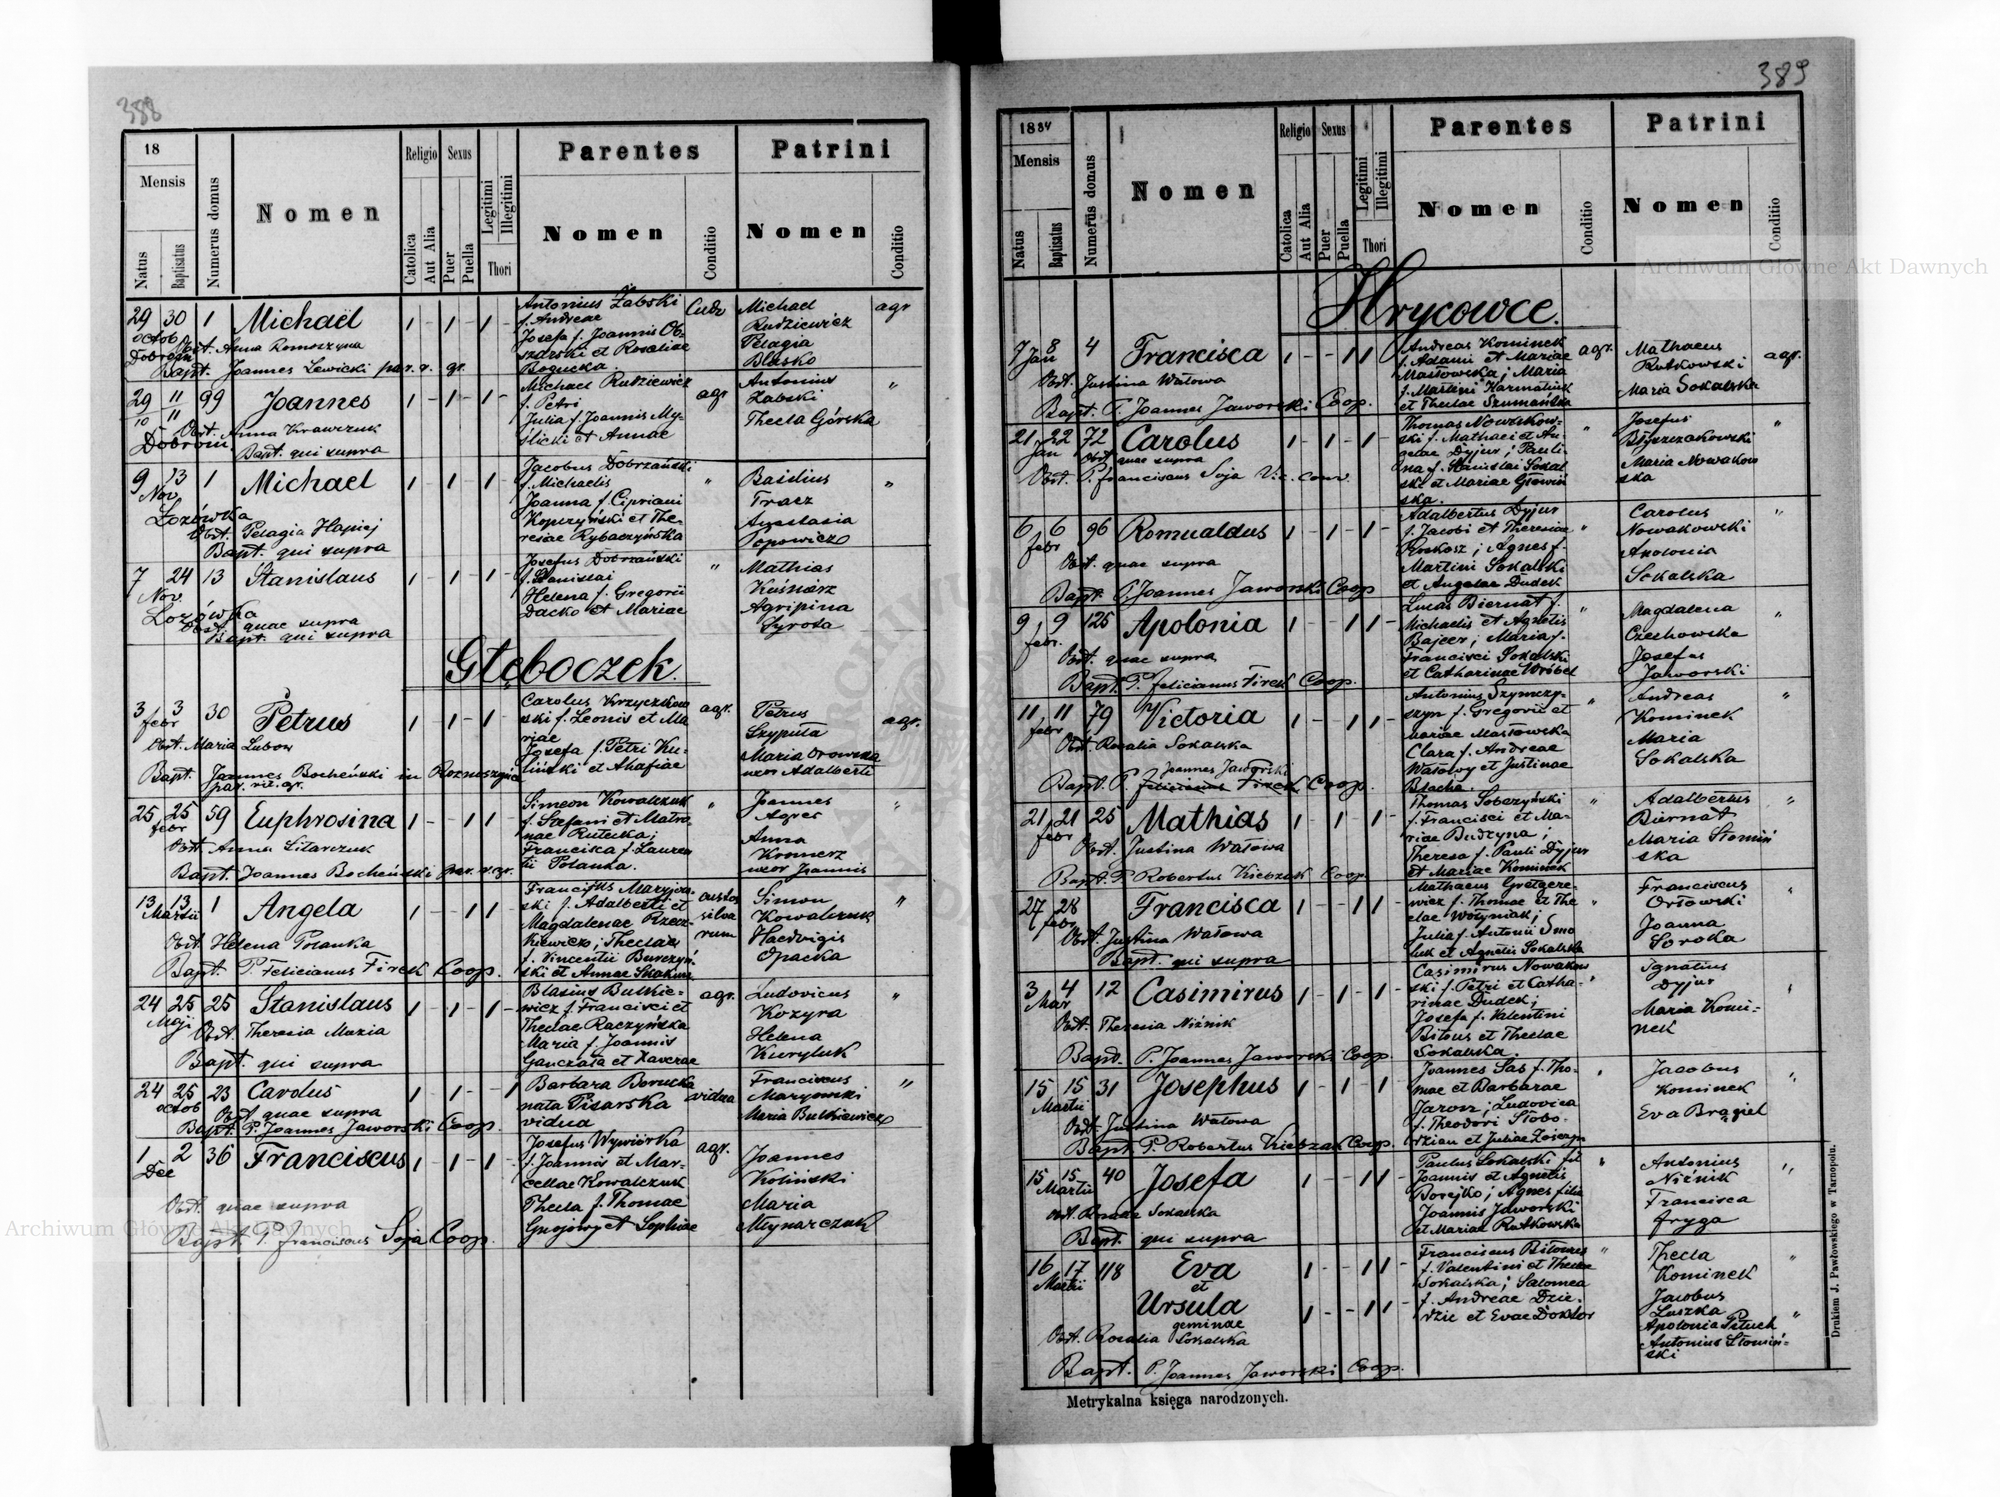 388
18
Mensis
Natus
Baptisatus
Numerus domus
Nomen
Religio
Catolica
Aut Alia
Sexus
Puer
Puella
Legitimi
Illegitimi
Thori
Parentes
Nomen
Conditio
Patrini
Nomen
Conditio
29 30 1 Michaël
Octob
Obst. Anna Romaszyna
Bapt. Joannes Lewicki par. r. gr.
Antonius Żabski
f. Andreae
Josefa f. Joannis Ob-
szarski et Rosaliae
Bogucka.
Michael
Rudziewicz
Pelagia
Blasko
agr
29 11 99 Joannes
10 11
Obst. Anna Krawczuk
Bapt. qui supra
Michael Rudziewicz
f. Petri
Julia f. Joannis My-
ślicki et Annae
agr
Antonius
Żabski
Thecla Górska
"
9 13 1 Michael
Nov
Łozówka
Obst. Pelagia Hapiej
Bapt. qui supra
Jacobus Dobrzański
f. Michaelis
Joanna f. Cipriani
Kopczyński et The-
resiae Rybaczyńska
"
Basilius
Tracz
Anastasia
Popowicz
"
7 24 13 Stanislaus
Nov.
Lozówka
Obst. quae supra
Bapt. qui supra
Josefus Dobrzański
f. Stanislai
Helena f. Gregorii
Dacko et Mariae
"
Mathias
Kuśnierz
Agripina
Syrota
Głęboczek.
3 3 30 Petrus
febr
Obst. Maria Lubow
Bapt. Joannes Bocheński in
par. rit. gr.
Carolus Krzyczkow
ski f. Leonis et Ma
riae
Josefa f. Petri Ku-
liński et Ahafiae
agr.
Petrus
Szyputa
Maria Orowska
uxor Adalberti
agr.
25 25 59 Euphrosina
febr
Obst. Anna Litarczuk
Bapt. Joannes Bocheński par. r. gr.
Simeon Kowalczuk
f. Stefani et Matro
nae Rutecka;
Francisca f. Lauren
tii Polanka.
"
Joannes
Agres
Anna
Kramerz
uxor Joannis
"
13 13 1 Angela
Martii
Obst. Helena Polanka
Bapt. P. Felicianus Firek Coop.
Magdalenae Rzecz-
kiewicz; Theclae
f. Vincentii Burczyń
ski et Annae Skakun
custos
silva
rum
Simon
Kowalczuk
Haedvigis
Opacka
"
24 25 25 Stanislaus
Maji
Obst. Theresia Mazia
Bapt. qui supra
Blasius Bulkie-
wicz f. Francisci et
Theclae Raczyńska
Maria f. Joannis
Ganczała et Xaverae
agr.
Ludovicus
Kozyra
Helena
Kurytuk
"
24 25 23 Carolus
octob
Obst. quae supra
Bapt. P. Joannes Jaworski Coop.
Barbara Borucka
nata Pisarska
vidua
vidua
Franciscus
Marynski
Maria Bulkiewicz
"
1 2 36 Franciscus
Dec
Obst. quae supra
Bapt. P. Franciscus Soja Coop.
Josefus Wywiórka
f. Joannis et Mar-
cellae Kowalczuk
Thecla f. Thomae
Gnojowy et Sophiae
agr.
Joannes
Koliński
Maria
Młynarczuk
389
1884
Mensis
Natus
Baptisatus
Numerus domus
Nomen
Religio
Catolica
Aut Alia
Sexus
Puer
Puella
Legitimi
Illegitimi
Thori
Parentes
Nomen
Conditio
Patrini
Nomen
Conditio
Hrycowce.
7 8 4 Francisca
Jan
Obst. Justina Watowa
Bapt. P. Joannes Jaworski Coop.
Andreas Kominek
f. Adami et Mariae
Masłowska; Maria
f. Martini Harmatiuk
et Theclae Szumańska
agr.
Mathaeus
Rutkowski
Maria Sokalska
agr.
21 22 72 Carolus
Jan
Obst. quae supra
Obst. P. Franciscus Soja Vic. conv.
Thomas Nowakow-
ski f. Mathaei et An-
gelae Dyjur; Pauli-
na f. Stanislai Sokal
ski et Mariae Głowiń
ska.
"
Josefus
Maria Nowakow
ska
"
6 6 96 Romualdus
febr
Obst. quae supra
Bapt. P. Joannes Jaworski Coop
Adalbertus Dyjur
f. Jacobi et Theresiae
Rokosz; Agnes f.
Martini Sokalski
et Angelae Dudek
"
Carolus
Nowakowski
Apolonia
Sokalska
"
9 9 125 Apolonia
febr.
Obst. quae supra
Bapt. P. Felicianus Firek Coop.
Lucas Biernat f.
Michaelis et Agnetis
Bajcer; Maria f.
Francisci Sokalski
et Catharinae Wróbel
"
Magdalena
Czechowska
Josefus
Jaworski
"
11 11 79 Victoria
febr
Obst. Rosalia Sokalska
Joannes Jaworski
Bapt. P. Felicianus Firek Coop.
Antonius Szymczy-
szyn f. Gregorii et
Mariae Masłowska
Clara f. Andreae
Watowy et Justinae
Blacha.
"
Andreas
Kominek
Maria
Sokalska
"
21 21 25 Mathias
febr
Obst. Justina Watowa
Bapt. P. Robertus Kiebzak Coop.
Thomas Sobczyński
f. Francisci et Ma-
riae Budzyna;
Theresa f. Pauli Dyjur
et Mariae Kominek
"
Adalbertus
Biernat
Maria Słomiń
ska
"
27 28 Francisca
febr
Obst. Justina Watowa
Bapt. qui supra
Mathaeus Gretgere-
wicz f. Thomae et The
clae Wołyniak;
Julia f. Antonii Smo
luk et Agnetis Sokalska
"
Franciscus
Orłowski
Joanna
Soroka
"
3 4 12 Casimirus
Mar
Obst. Theresia Niźnik
Bapt. P. Joannes Jaworski Coop.
Casimirus Nowakow
ski f. Petri et Catha-
rinae Dudek;
Josefa f. Valentini
Bitous et Theclae
Sokalska.
"
Ignatius
Dyjur
Maria Komi-
nek
"
15 15 31 Josephus
Martii
Obst. Justina Watowa
Bapt. P. Robertus Kiebzak Coop.
Joannes Sas f. Tho-
mae et Barbarae
Jaron; Ludovica
f. Theodori Słobo-
dzian et Juliae
"
Jacobus
Kominek
Eva Brągiel
"
15 15 40 Josefa
Martii
Obst. Rosalia Sokalska
Bapt. qui supra
Paulus Sokalski fil
Joannis et Agnetis
Borejko; Agnes filia
Joannis Jaworski
et Mariae Rutkowska
"
Antonius
Niźnik
Francisca
Fryga
"
16 17 118 Eva
Martii
et
Ursula
geminae
Obst. Rosalia Sokalska
Bapt. P. Joannes Jaworski Coop.
Franciscus Bitoues
f. Valentini et Theclae
Sokalska; Salomea
f. Andreae Dzie-
dzic et Evae Doktor
"
Thecla
Kominek
Jacobus
Luszka
Apolonia Pituch
Antonius Słomiń-
ski
"
Metrykalna księga narodzonych.
Drukiem J. Pawłowskiego w Tarnopolu.
Archiwum Główne Akt Dawnych
Archiwum Główne Akt Dawnych